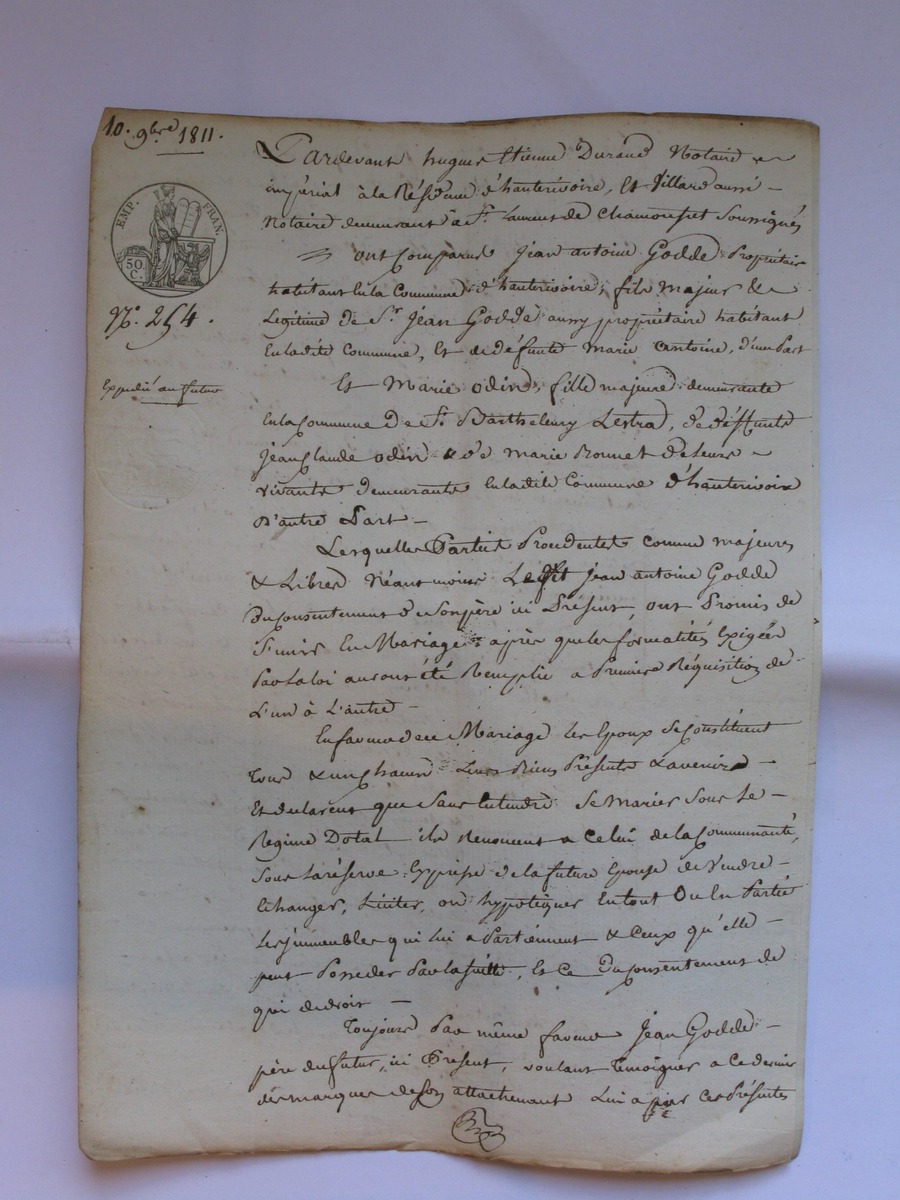 10. 9bre 1811.
EMP. FRAN.
50 C.
N°. 254.
Expedié au futur
Pardevant hugues Etienne Durand Notaire
impérial à la Résidence d'hauterivoire, Et Villard aussi
Notaire demeurant à St. Laurent de Chamousset Soussignés
ont Comparus Jean antoine Godde Propriétaire
habitant En la Commune d'hauterivoire, fils majeur &
Légitime de Sr. Jean Godde aussy propriétaire habitant
En la dite Commune, Et de défunte Marie antoine, d'une Part
Et Marie odin, fille majeure demeurante
En la Commune De St. Barthelemy Lestra, de déffunts
Jean Claude odin & de marie Bonnet de Leurs
vivants demeurants En la dite Commune d'hauterivoire
D'autre Part
Lesquelles Parties Procedentes comme majeures
& Libres Néant moins Ledit Jean antoine Godde
Du Consentement de Son père ici Présent, ont Promis de
S'unir En Mariage après que les formalités Exigées
Par La loi auront été Remplie a Premiere Réquisition de
L'un à L'autre
En faveur de ce Mariage Les Epoux Se Constituent
Tous & un Chacun Leurs Biens Présents & avenir
Et declarent que Sans Entendre Se Marier Sous Le
Regime Dotal ils Renoncent a Celui de la Communauté,
Sous La réserve Expresse de la future Epouse de Vendre
Echanger, Liciter, ou hypotéquer En tout Ou En Partie
Les immeubles qui Lui a Partiennent & Ceux qu'elle
peut Posseder Par la suitte, Et Ce Du Consentement de
qui de droit
Toujours Par même faveur Jean Godde
père du futur, ici Present, voulant Temoigner a Ce dernier
des marques de Son attachement Lui a par Ces Présentes